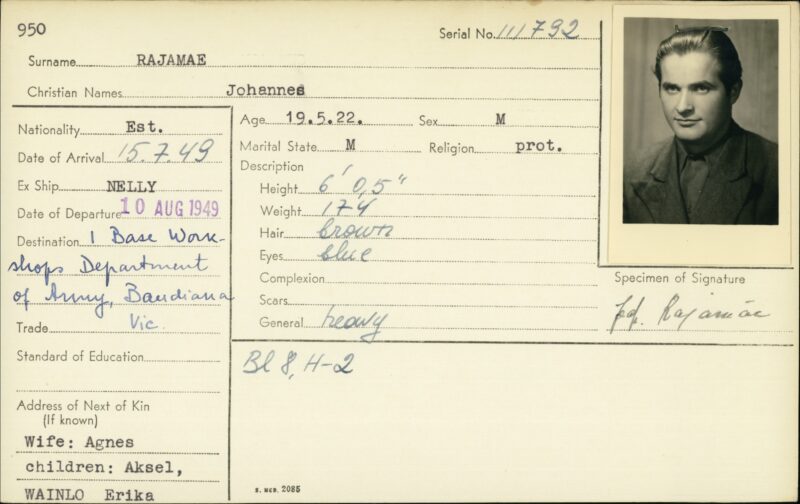 950
Serial No. 111792
Surname RAJAMAE
Christian Names Johannes
Nationality Est.
Date of Arrival 15.7.49
Ex Ship NELLY
Date of Departure 10 AUG 1949
Destination 1 Base Work-
shops Department
of Army, Bandiana
Trade Vic.
Standard of Education
Address of Next of Kin
(If known)
Wife: Agnes
children: Aksel,
WAINLO Erika
Age 19.5.22. Sex M
Marital State M Religion prot.
Description
Height 6' 0,5"
Weight 174
Hair brown
Eyes blue
Complexion
Scars
General heavy
Bl 8, H-2
S. MED. 2085
Specimen of Signature
Rajamäe